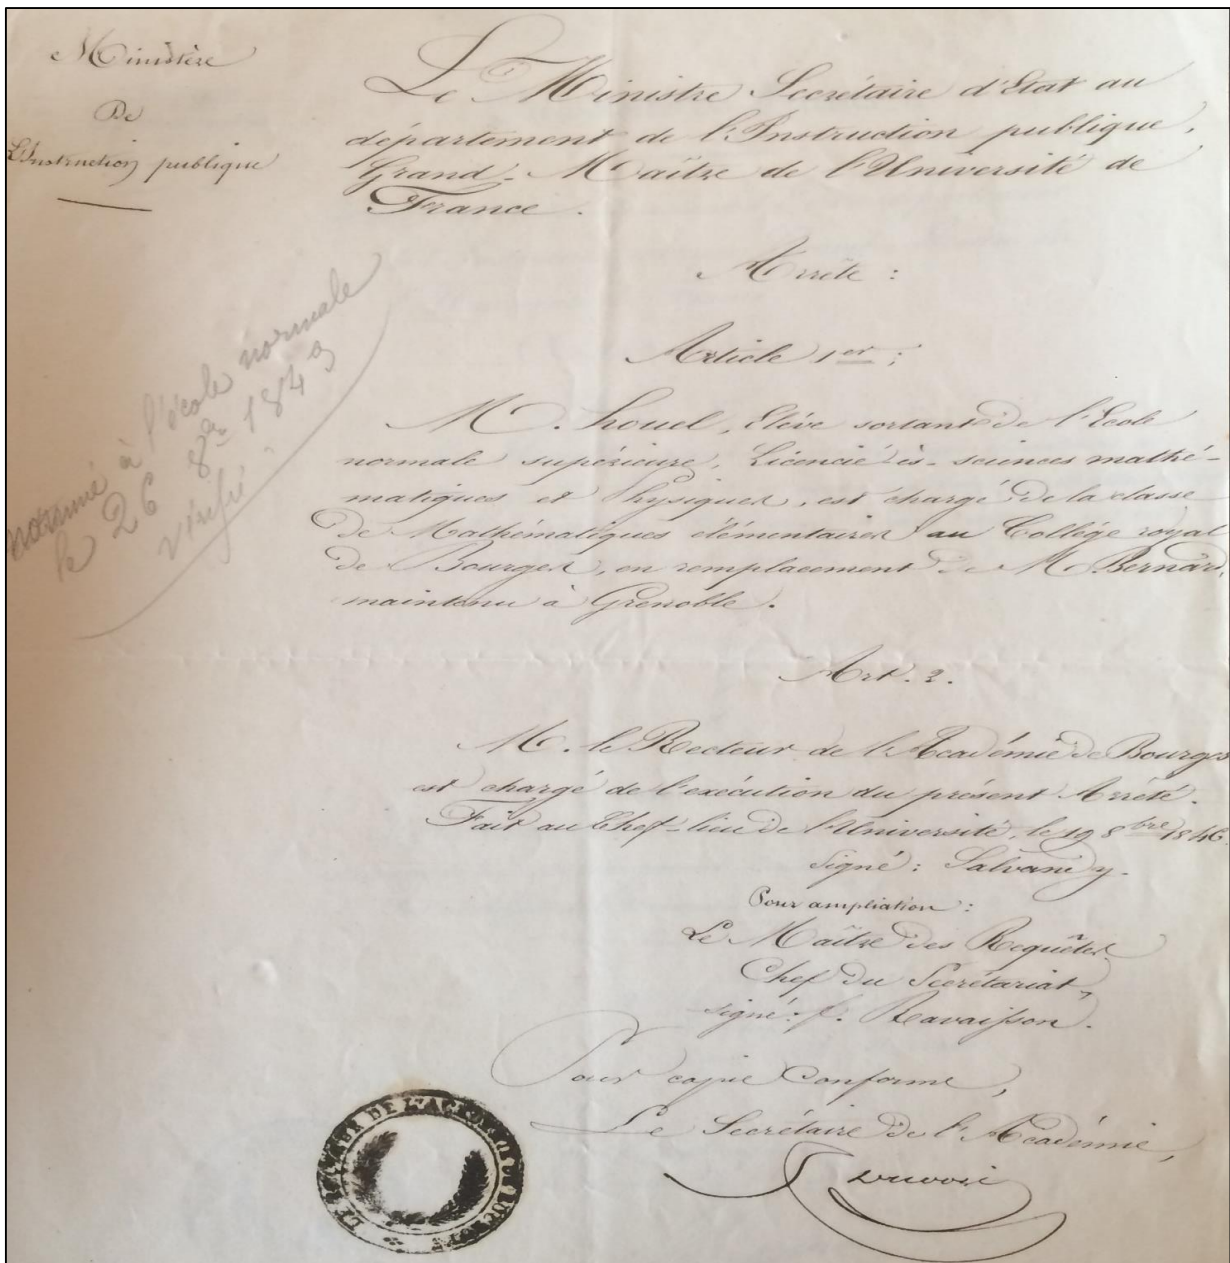 Ministère
De
L'Instruction publique
Le Ministre Secrétaire d'Etat au
département de l'Instruction publique,
Grand-Maître de l'Université de
France.
Arrête :
Article 1er :
M. Houel, Elève sortant de l'Ecole
normale supérieure, Licencié-ès-sciences mathé-
matiques et Physiques, est chargé de la classe
de Mathématiques élémentaires au Collége royal
de Bourges, en remplacement de M. Bernard,
maintenu à Grenoble.
Art. 2.
M. le Recteur de l'Académie de Bourges
est chargé de l'exécution du présent Arrêté.
Fait au Chef-lieu de l'Université, le 19 8bre 1846.
Signé : Salvandy.
Pour ampliation :
Le Maître des Requêtes
Chef du Secrétariat,
signé : f. Ravaisson.
Pour copie Conforme,
Le Secrétaire de l'Académie,
nommé à l'école normale
le 26 8bre 1843
vérifié